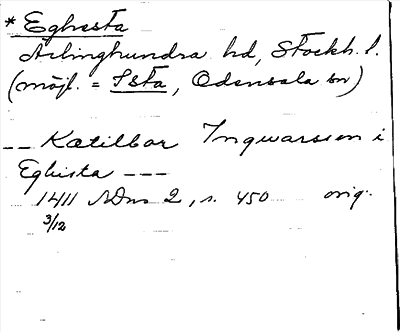 * Eghesta
Ärlinghundra hd, Stockh. l.
(möjl. = Ista, Odensala sn)
-- Kætilbor Ingwarsson i
Eghista ---
1411 SDns 2, s. 450 orig.
3/12